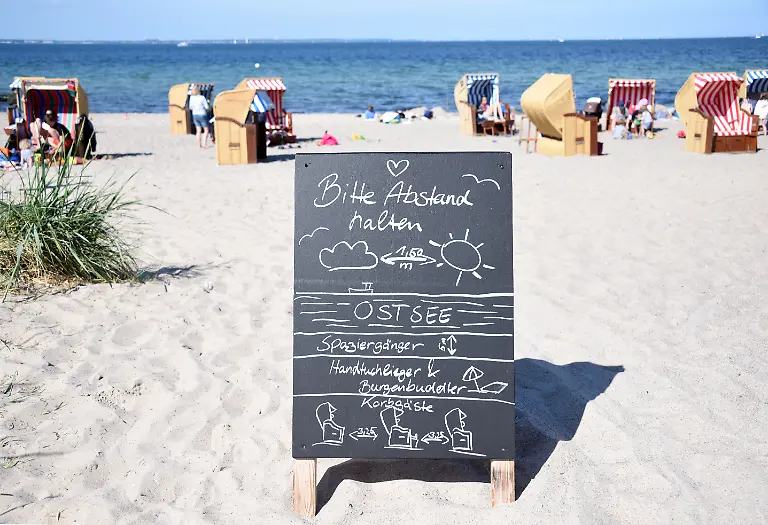 Bitte Abstand
halten
1,50
m
OSTSEE
Spaziergänger
Handtuchlieger &
Burgenbuddler
Korbgäste
3,25 3,25